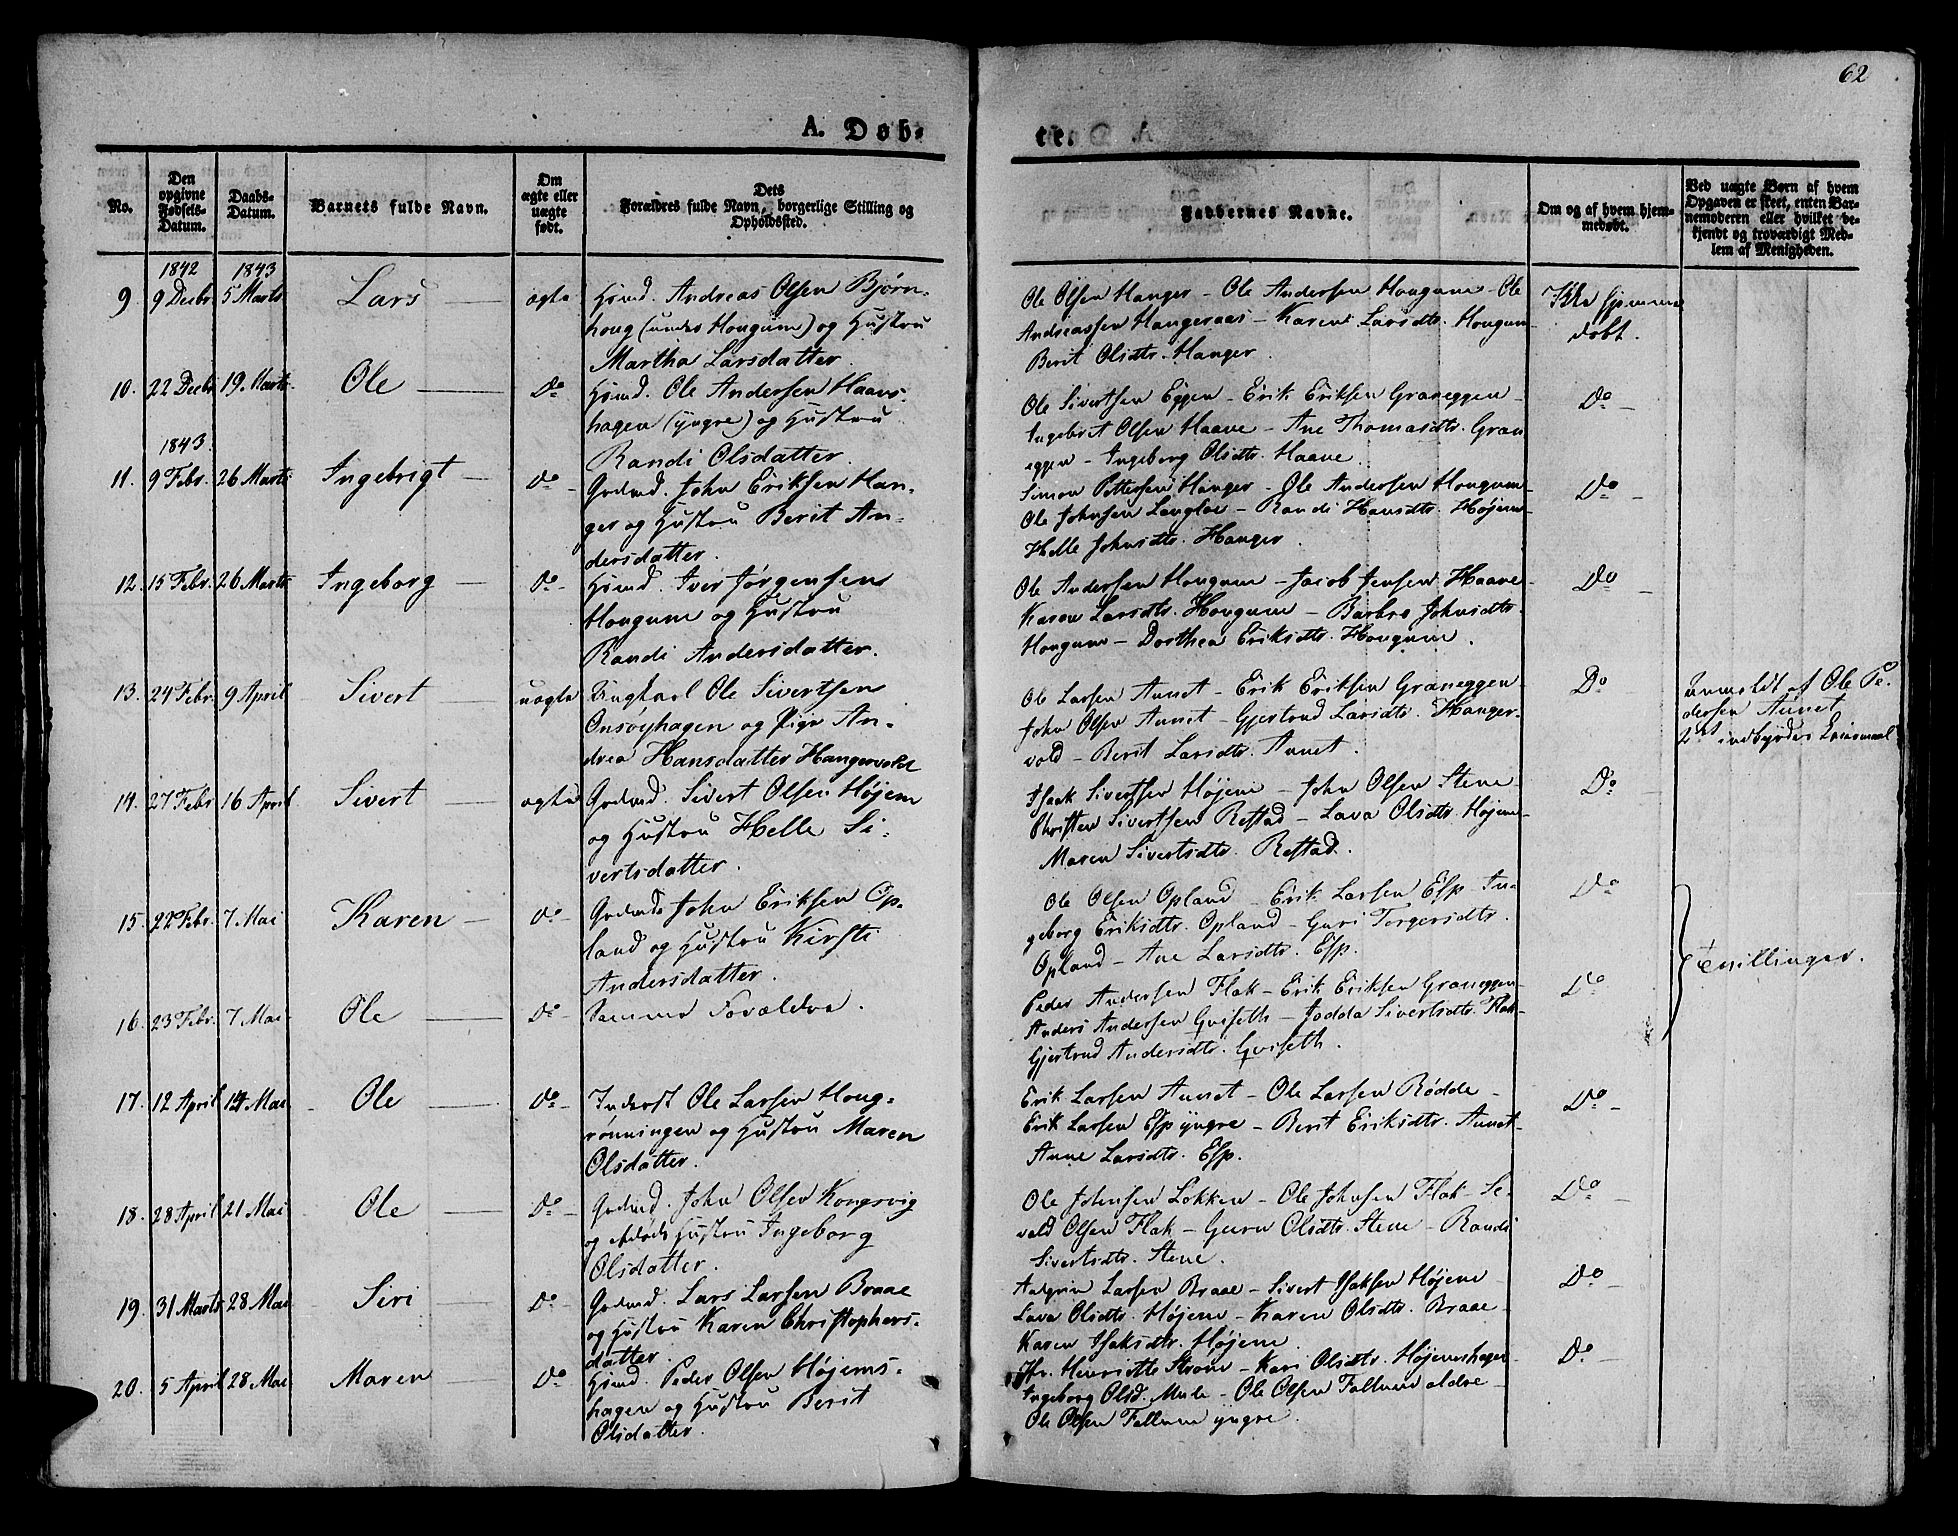 62
A. Døb-
te.
No.
Den opgivne Fødsels-Datum.
Daabs-Datum.
Barnets fulde Navn.
Om ægte eller uægte født.
Dets Forældres fulde Navn, borgerlige Stilling og Opholdssted.
Faddernes Navne.
Om og af hvem hjem-medøbt.
Ved uægte Børn af hvem Opgaven er skeet, enten Bar-nemoderen eller hvilket be-kjendt og troværdigt Med-lem af Menigheden.
1842 1843
9 9 Decbr 5 Marts Lars ægte Huusmd. Andreas Olsen Bjørn-
houg (under Hougum) og Hustru
Martha Larsdatter.
Ole Olsen Hanger - Ole Andersen Hougum - Ole
Andreassen Hangeraas - Karen Larsdtr. Hougum
Berit Olsdtr. Hanger.
Ikke hjemme
døbt.
10. 22 Decbr 19. Marts Ole Do Huusmd. Ole Andersen Haavs-
hagen (yngre) og Hustru
Randi Olsdatter.
Ole Sivertsen Eggen - Erik Eriksen Graneggen -
Ingebrit Olsen Haave - Ane Thomasdtr. Gran
eggen - Ingeborg Olsdtr. Haave.
Do
1843.
11. 9 Febr. 26 Marts Ingebrigt Do Gaardmd. John Eriksen Han-
ger og Hustru Berit An-
dersdatter.
Simon Pettersen Hanger - Ole Andersen Hougum -
Ole Johnsen Langløe - Randi Hansdtr. Højem -
Helle Johnsdtr. Hanger.
Do
12. 15 Febr. 26 Marts Ingeborg Do Huusmd. Iver Jørgensen
Hougum og Hustru
Randi Andersdatter.
Ole Andersen Hougum - Jacob Jensen Haave -
Karen Larsdtr. Hougum - Barbro Johnsdtr.
Hougum - Dorthea Eriksdtr. Hougum.
Do
13. 24 Febr. 9 April Sivert uægte Ungkarl Ole Sivertsen
Onsøyhagen og Pige An-
drea Hansdatter Hangervold
Ole Larsen Aunet - Erik Eriksen Graneggen -
John Olsen Aunet - Gjertrud Larsdtr. Hanger-
vold - Berit Larsdtr. Aunet.
Do
Anmeldt af Ole Pe-
dersen Aunet
2det indbyrdes Leiermaal
14. 27 Febr 16 April Sivert ægte Gaardmd. Sivert Olsen Højem
og Hustru Helle Si-
vertsdatter.
Isak Sivertsen Højem - John Olsen Stene -
Christen Sivertsen Refstad - Lava Olsdtr. Højem -
Maren Sivertsdtr. Refstad.
Do
15. 22 Febr. 7. Mai Karen Do Gaardmd. John Eriksen Op-
land og Hustru Kirsti
Andersdatter.
Ole Olsen Opland - Erik Larsen Esp - In-
geborg Eriksdtr. Opland - Guri Torgersdtr.
Opland - Ane Larsdtr. Esp.
Do
Tvillinger.
16. 23 Febr. 7. Mai Ole Do Samme Forældre.
Peder Andersen Flak - Erik Eriksen Graneggen -
Anders Andersen Gviseth - Jodda Sivertsdtr. Flak -
Gjertrud Andersdtr. Gviseth.
Do
17. 12 April 14 Mai Ole Do Inderst Ole Larsen Houg-
rønningen og Hustru Maren
Olsdatter.
Erik Larsen Aunet - Ole Larsen Rødde -
Erik Larsen Esp yngre - Berit Eriksdtr. Aunet -
Anne Larsdtr. Esp.
Do
18. 28 April 21 Mai Ole Do Gaardmd. John Olsen Kongsvig
og afdøde Hustru Ingeborg
Olsdatter.
Ole Johnsen Løkken - Ole Johnsen Flak - Se-
vald Olsen Flak - Guru Olsdtr. Stene - Randi
Sivertsdtr. Stene.
Do
19. 31 Marts 28 Mai Siri Do Gaardmd. Lars Larsen Braae
og Hustru Karen Christophers-
datter.
Larsen Braae - Sivert Isaksen Højem -
Lava Olsdtr. Højem - Karen Olsdtr. Braae -
Karen Isaksdtr. Højem.
Do
20. 5 April 28 Mai Maren Do Huusmd. Peder Olsen Højems-
hagen og Hustru Berit
Olsdatter.
Fr. Henriette Strøm - Kari Olsdtr. Højemshagen -
Ingeborg Olsd. Mule - Ole Olsen Follum ældre -
Ole Olsen Follum yngre.
Do